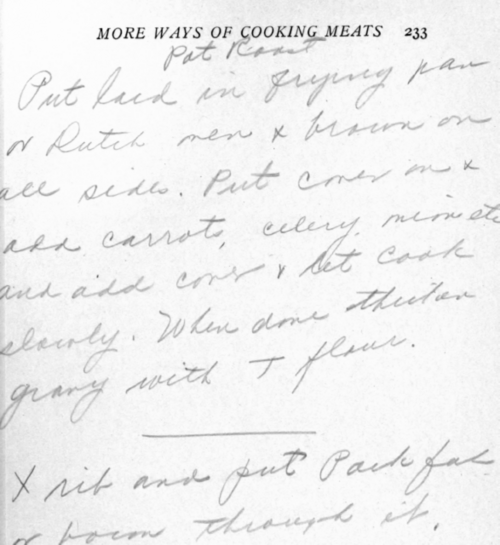 MORE WAYS OF COOKING MEATS 233
Pot Roast
Put lard in frying pan
or Dutch oven & brown on
all sides. Put cover on &
add carrots, celery, onion etc
and add cover & let cook
slowly. When done thicken
gravy with T flour.
X rib and put Pork fat
or bacon through it.